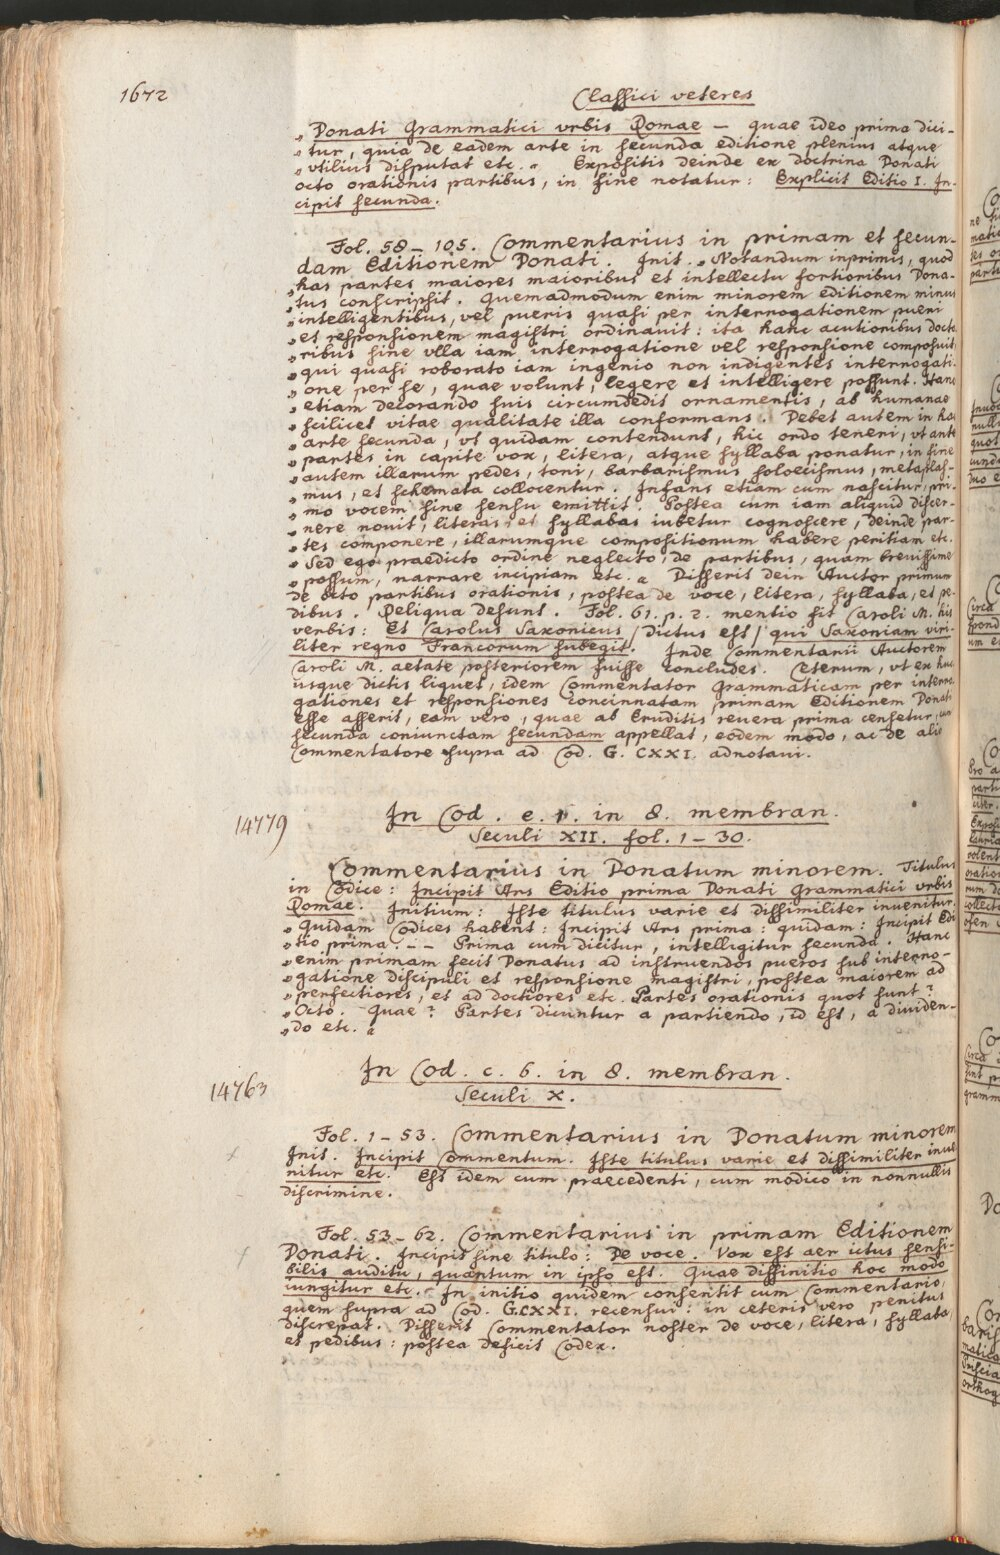 1672
Classici veteres
„ Donati Grammatici urbis Romae — quae ideo prima dici-
„ tur, quia de eadem arte in secunda editione plenius atque
„ utilius disputat etc. “ Expositis deinde ex doctrina Donati
octo orationis partibus, in fine notatur: Explicit Editio I. In-
cipit secunda.
Fol. 58 – 105. Commentarius in primam et secun-
dam Editionem Donati. Init. „ Notandum inprimis, quod
„ has partes maiores maioribus et intellectu fortioribus Dona-
„ tus conscripsit. Quemadmodum enim minorem editionem minus
„ intelligentibus, vel pueris quasi per interrogationem pueri
„ et responsionem magistri ordinavit: ita hanc acutioribus docto
„ ribus sine ulla iam interrogatione vel responsione composuit,
„ qui quasi roborato iam ingenio non indigentes interrogati-
„ one per se, quae volunt, legere et intelligere possunt. Hanc
„ etiam decorando suis circumdedit ornamentis, ab humanae
„ scilicet vitae qualitate illa conformans. Debet autem in hac
„ arte secunda, ut quidam contendunt, hic ordo teneri, ut ante
„ partes in capite vox, litera, atque syllaba ponatur, in fine
„ autem illarum pedes, toni, barbarismus soloecismus, metaplas-
„ mus, et schemata collocentur. Infans etiam cum nascitur, pri-
„ mo vocem sine sensu emittit. Postea cum iam aliquid discer-
„ nere novit, literas et syllabas iubetur cognoscere, deinde par-
„ tes componere, illarumque compositionum habere peritiam etc.
„ Sed ego praedicto ordine neglecto, de partibus, quam brevissime
„ possum, narrare incipiam etc. “ Disserit dein Auctor primum
de octo partibus orationis, postea de voce, litera, syllaba, et pe-
dibus. Reliqua desunt. Fol. 61. p. 2. mentio fit Caroli M. his
verbis: Et Carolus Saxonicus /dictus est/ qui Saxoniam viri-
liter regno Francorum subegit. Inde Commentarii Auctorem
Caroli M. aetate posteriorem fuisse concludes. Ceterum, ut ex huc
usque dictis liquet, idem Commentator Grammaticam per interro-
gationes et responsiones concinnatam primam Editionem Donati
esse asserit, eam vero, quae ab Eruditis revera prima censetur, cum
secunda coniunctam secundam appellat, eodem modo, ac de alio
Commentatore supra ad Cod. G. CXXI. adnotavi.
14779
In Cod. e. 1. in 8. membran.
Seculi XII. fol. 1 – 30.
Commentarius in Donatum minorem. Titulus
in Codice: Incipit Ars Editio prima Donati Grammatici urbis
Romae. Initium: Iste titulus varie et dissimiliter invenitur.
„ Quidam Codices habent: Incipit Ars prima: quidam: Incipit Edi
„ tio prima. – – Prima cum dicitur, intelligitur secunda. Hanc
„ enim primam fecit Donatus ad instruendos pueros sub interro-
„ gatione discipuli et responsione magistri, postea maiorem ad
„ perfectiores, et ad doctiores etc. Partes orationis quot sunt?
„ Octo. Quae? Partes dicuntur a partiendo, id est, a dividen-
„ do etc. “
14763
In Cod. c. 6. in 8. membran.
Seculi X.
Fol. 1 – 53. Commentarius in Donatum minorem
Init. Incipit Commentum. Iste titulus varie et dissimiliter inve
nitur etc. Est idem cum praecedenti, cum modico in nonnullis
discrimine.
Fol. 53 – 62. Commentarius in primam Editionem
Donati. Incipit sine titulo: De voce. Vox est aer ictus sensi-
bilis auditu, quantum in ipso est. Quae diffinitio hoc modo
iungitur etc. In initio quidem consentit cum Commentario,
quem supra ad Cod. G. CXXI. recensui: in ceteris vero penitus
discrepat. Disserit Commentator noster de voce, litera, syllaba,
et pedibus: postea deficit Codex.